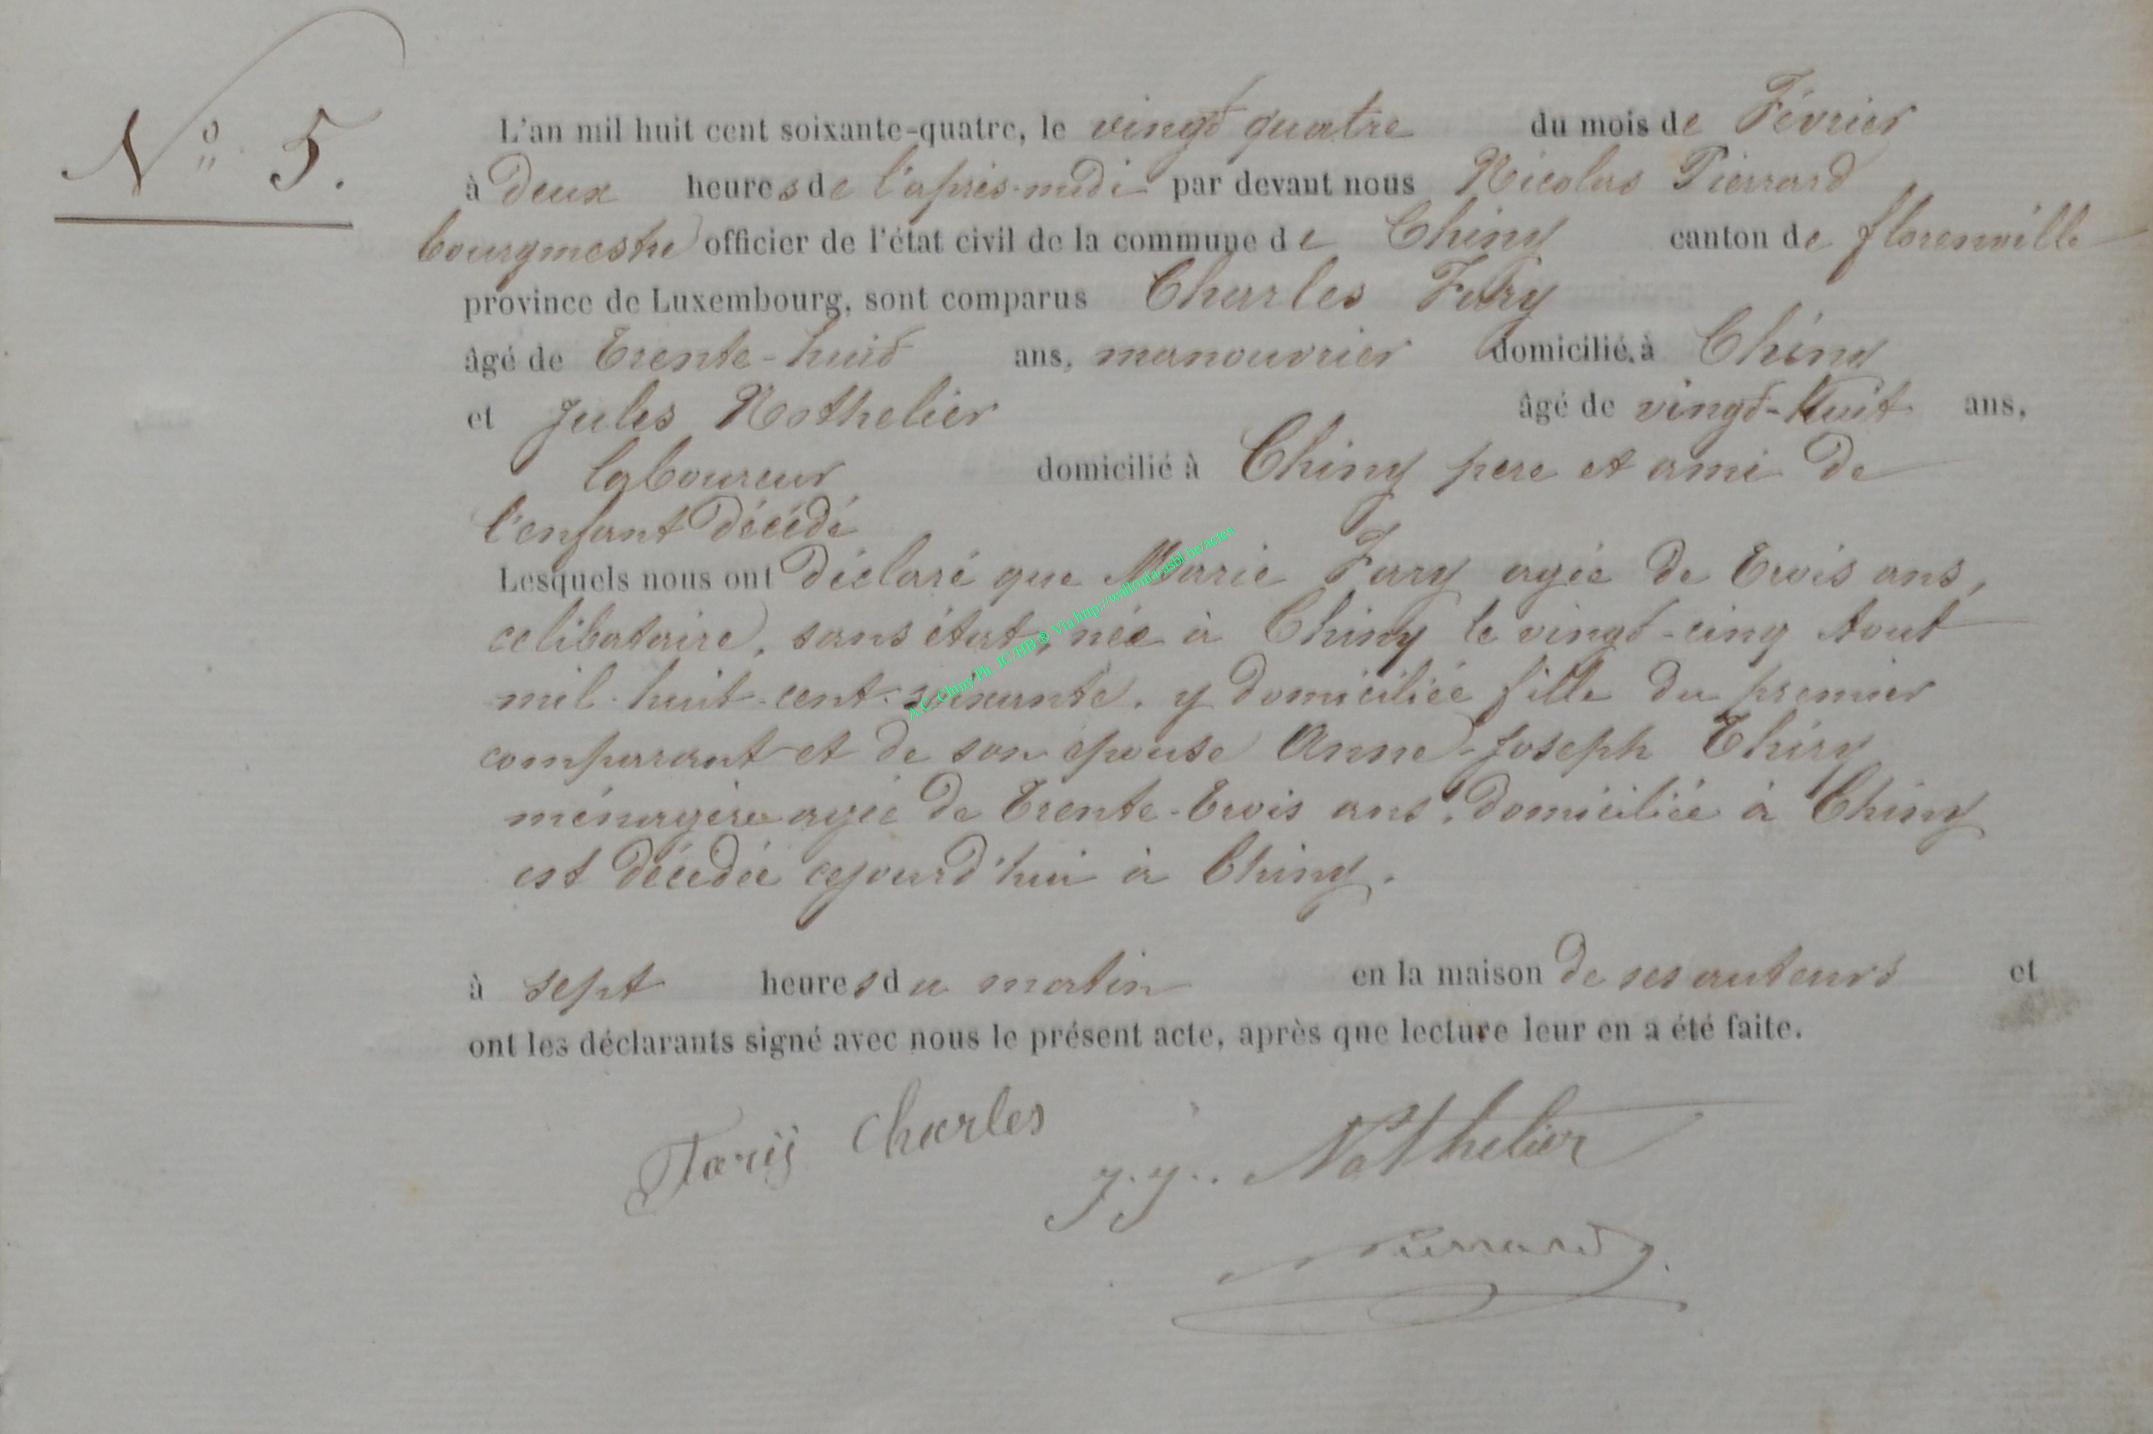 N° 5.
L'an mil huit cent soixante-quatre, le vingt quatre du mois de Février
à deux heures de l'après-midi par devant nous Nicolas Pierrard
bourgmestre officier de l'état civil de la commune de Chiny canton de florenville
province de Luxembourg, sont comparus Charles Fary
âgé de trente-huit ans, manouvrier domicilié à Chiny
et Jules Nothelier âgé de vingt-huit ans,
laboureur domicilié à Chiny pere et ami de
l'enfant décédé
Lesquels nous ont déclaré que Marie Fary agée de trois ans,
celibataire, sans état, née à Chiny le vingt-cinq Aout
mil-huit-cent-soixante, y domiciliée fille du premier
comparant et de son epouse Anne-Joseph Thiry
ménagère agée de trente-trois ans, domiciliée à Chiny
est décédée cejourd'hui à Chiny.
à sept heures du matin en la maison de ses auteurs et
ont les déclarants signé avec nous le présent acte, après que lecture leur en a été faite.
Farÿ Charles
j. j.. Nothelier
Pierrard
A.C. Chiny Ph. JC.HB ® Via http://wallonia-asbl.be/actes